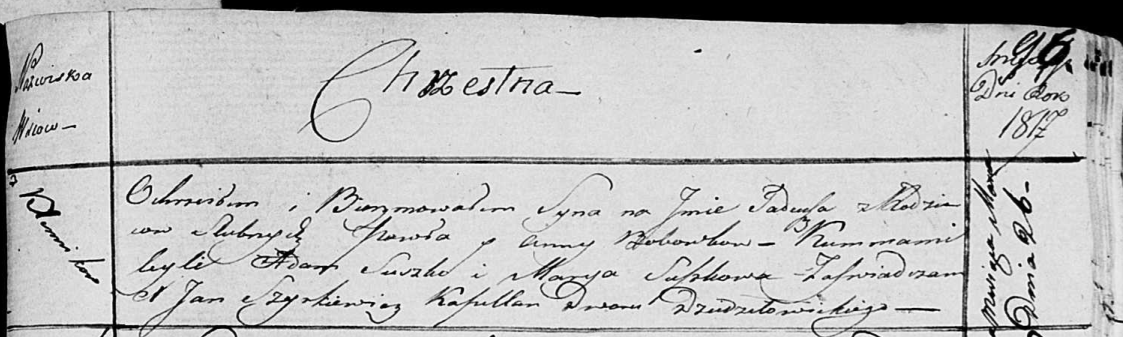 Nazwiska
Wsiow
Chrzestna
96
Dni Rok
1817
Ochrzciłem i Bierzmowałem Syna na Jmie Tadeusza z Rodzi
cow Slubnych Pawła y Anny Bobowkow Kummami
byli Adam Suszko i Marya Suszkowa Zaświadczam
X Jan Szyrkiewicz Kapellan Dworu Dziedziłowickiego
Miesiąca Marca
Dnia 26